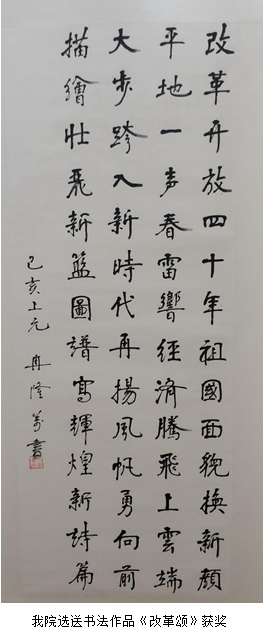 改革开放四十年祖國面貌換新顏
平地一声春雷響經濟騰飛上雲端
大步跨入新時代再揚風帆勇向前
描繪壯麗新藍圖譜寫輝煌新詩篇
己亥上元 冉隆書
我院选送书法作品《改革颂》获奖